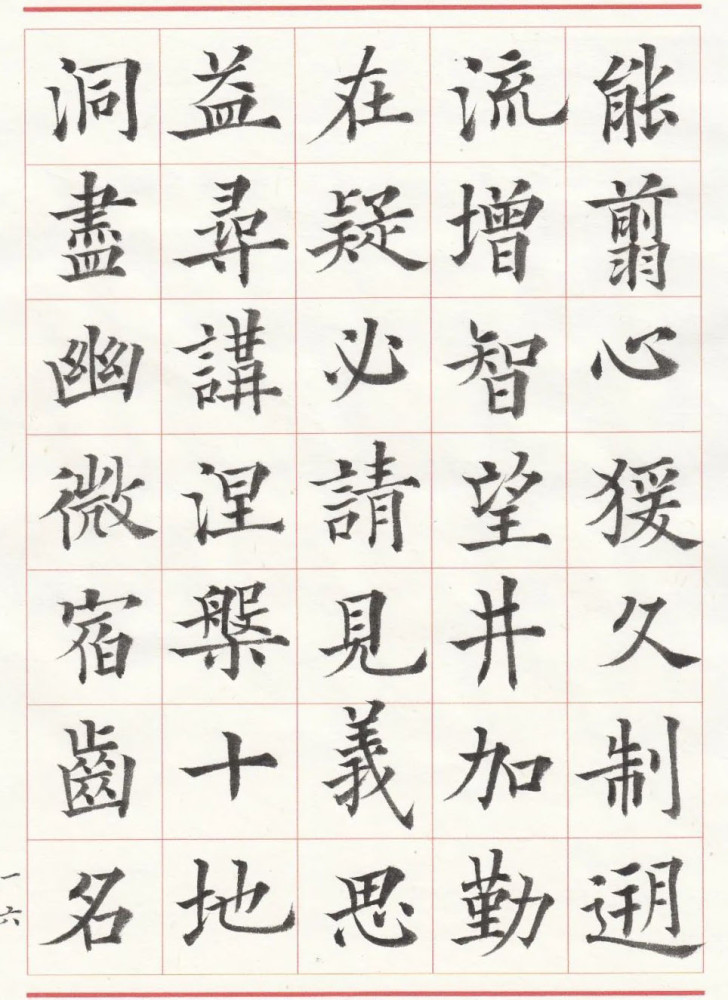 能翦心猨久制遡
流增智望井加勤
在疑必請見義思
益尋講涅槃十地
洞盡幽微宿齒名
一六